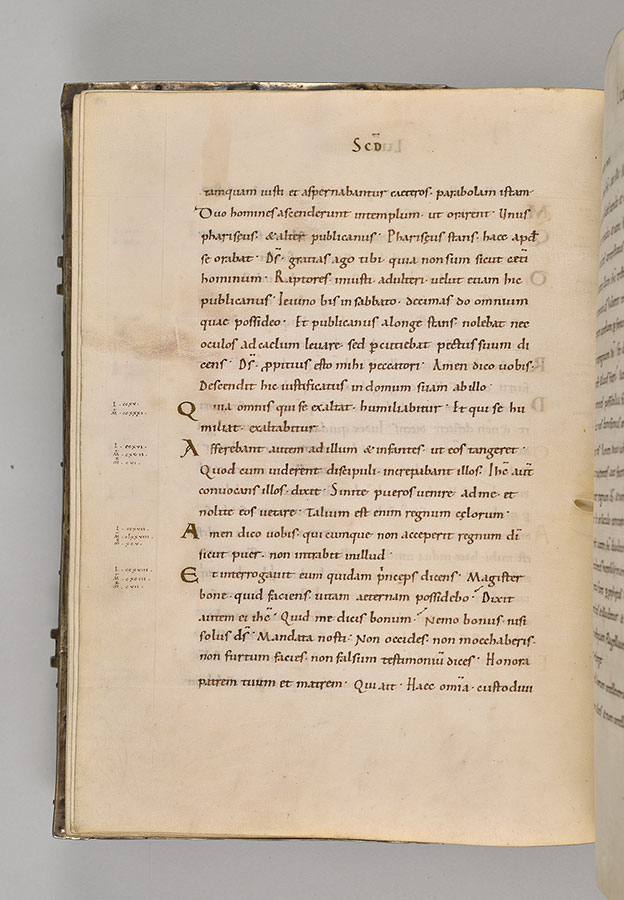 Scd̄
tamquam iusti et aspernabantur caeteros· parabolam istam·
Duo homines ascenderunt in templum· ut orarent· Unus
phariseus· & alter publicanus· Phariseus stans· haec apud
se orabat· Dš· gratias ago tibi· quia non sum sicut ceti
hominum· Raptores· iniusti· adulteri· velut etiam hic
publicanus· Ieiuno bis in sabbato· decimas do omnium
quae possideo· Et publicanus a longe stans· nolebat nec
oculos ad caelum levare· sed pcutiebat pectus suum di
cens· Dš· ppitius esto mihi peccatori· Amen dico vobis·
Descendit hic iustificatus in domum suam ab illo·
Quia omnis qui se exaltat· humiliabitur· Et qui se hu
miliat· exaltabitur·
Afferebant autem ad illum & infantes· ut eos tangeret·
Quod cum viderent discipuli· increpabant illos· Ihc̄ aut̄
convocans illos· dixit· Sinite pueros venire ad me· et
nolite eos vetare· Talium est enim regnum cęlorum·
Amen dico vobis· qui cumque non acceperit regnum dī
sicut puer· non intrabit in illud·
Et interrogavit eum quidam pinceps dicens· Magister
bone· quid faciens· vitam aeternam possidebo· Dixit
autem ei ihc̄· Quid me dicis bonum· Nemo bonus· nisi
solus dš· Mandata nosti· Non occides· non moechaberis·
non furtum facies· non falsum testimoniū dices· Honora
patrem tuum et matrem· Qui ait· Haec omīa· custodivi